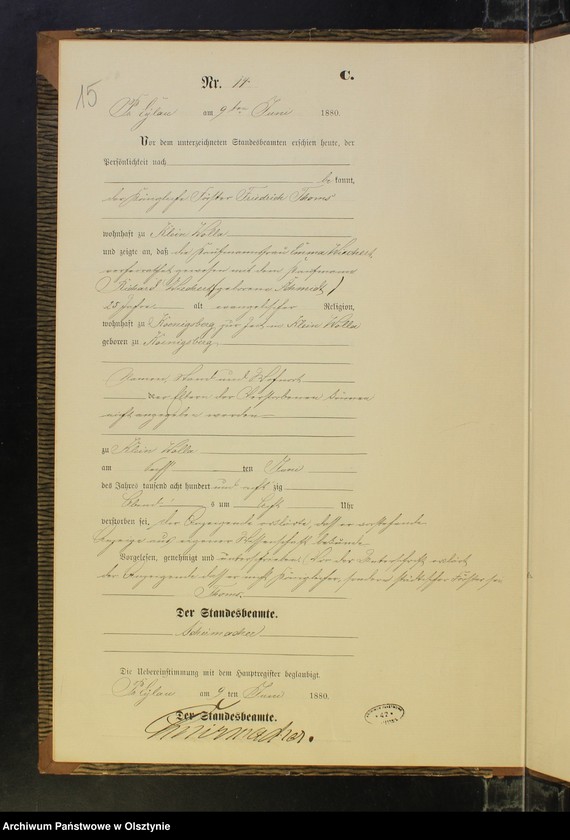 15
Nr. 14.
C.
Pr. Eylau am 9ten Juni 1880.
Vor dem unterzeichneten Standesbeamten erschien heute, der
Persönlichkeit nach
be kannt,
der Königliche Förster Friedrich Thoms
wohnhaft zu Klein Wolla
und zeigte an, daß die Kaufmannsfrau Emma Wiechert
verheirathet gewesen mit dem Kaufmann
Richard Wiechert geborene Schmidt
25 Jahre alt evangelischer Religion,
wohnhaft zu Koenigsberg zur Zeit in Klein Wolla
geboren zu Koenigsberg
Namen, Stand und Wohnort
der Eltern der Verstorbenen können
nicht angegeben werden
zu Klein Wolla
am ten Juni
des Jahres tausend acht hundert und acht zig
Abends um Uhr
verstorben sei, der Anzeigende erklärte, daß er vorstehende
Anzeige aus eigener Wissenschaft bekunde
Vorgelesen, genehmigt und unterschrieben Vor der Unterschrift erklärt
der Anzeigende daß er nicht Königlicher, sondern städtischer Förster sei
Thoms.
Der Standesbeamte.
Schirmacher
Die Uebereinstimmung mit dem Hauptregister beglaubigt.
Pr. Eylau am 9 ten Juni 1880.
Der Standesbeamte.
Schirmacher.
Archiwum Państwowe w Olsztynie